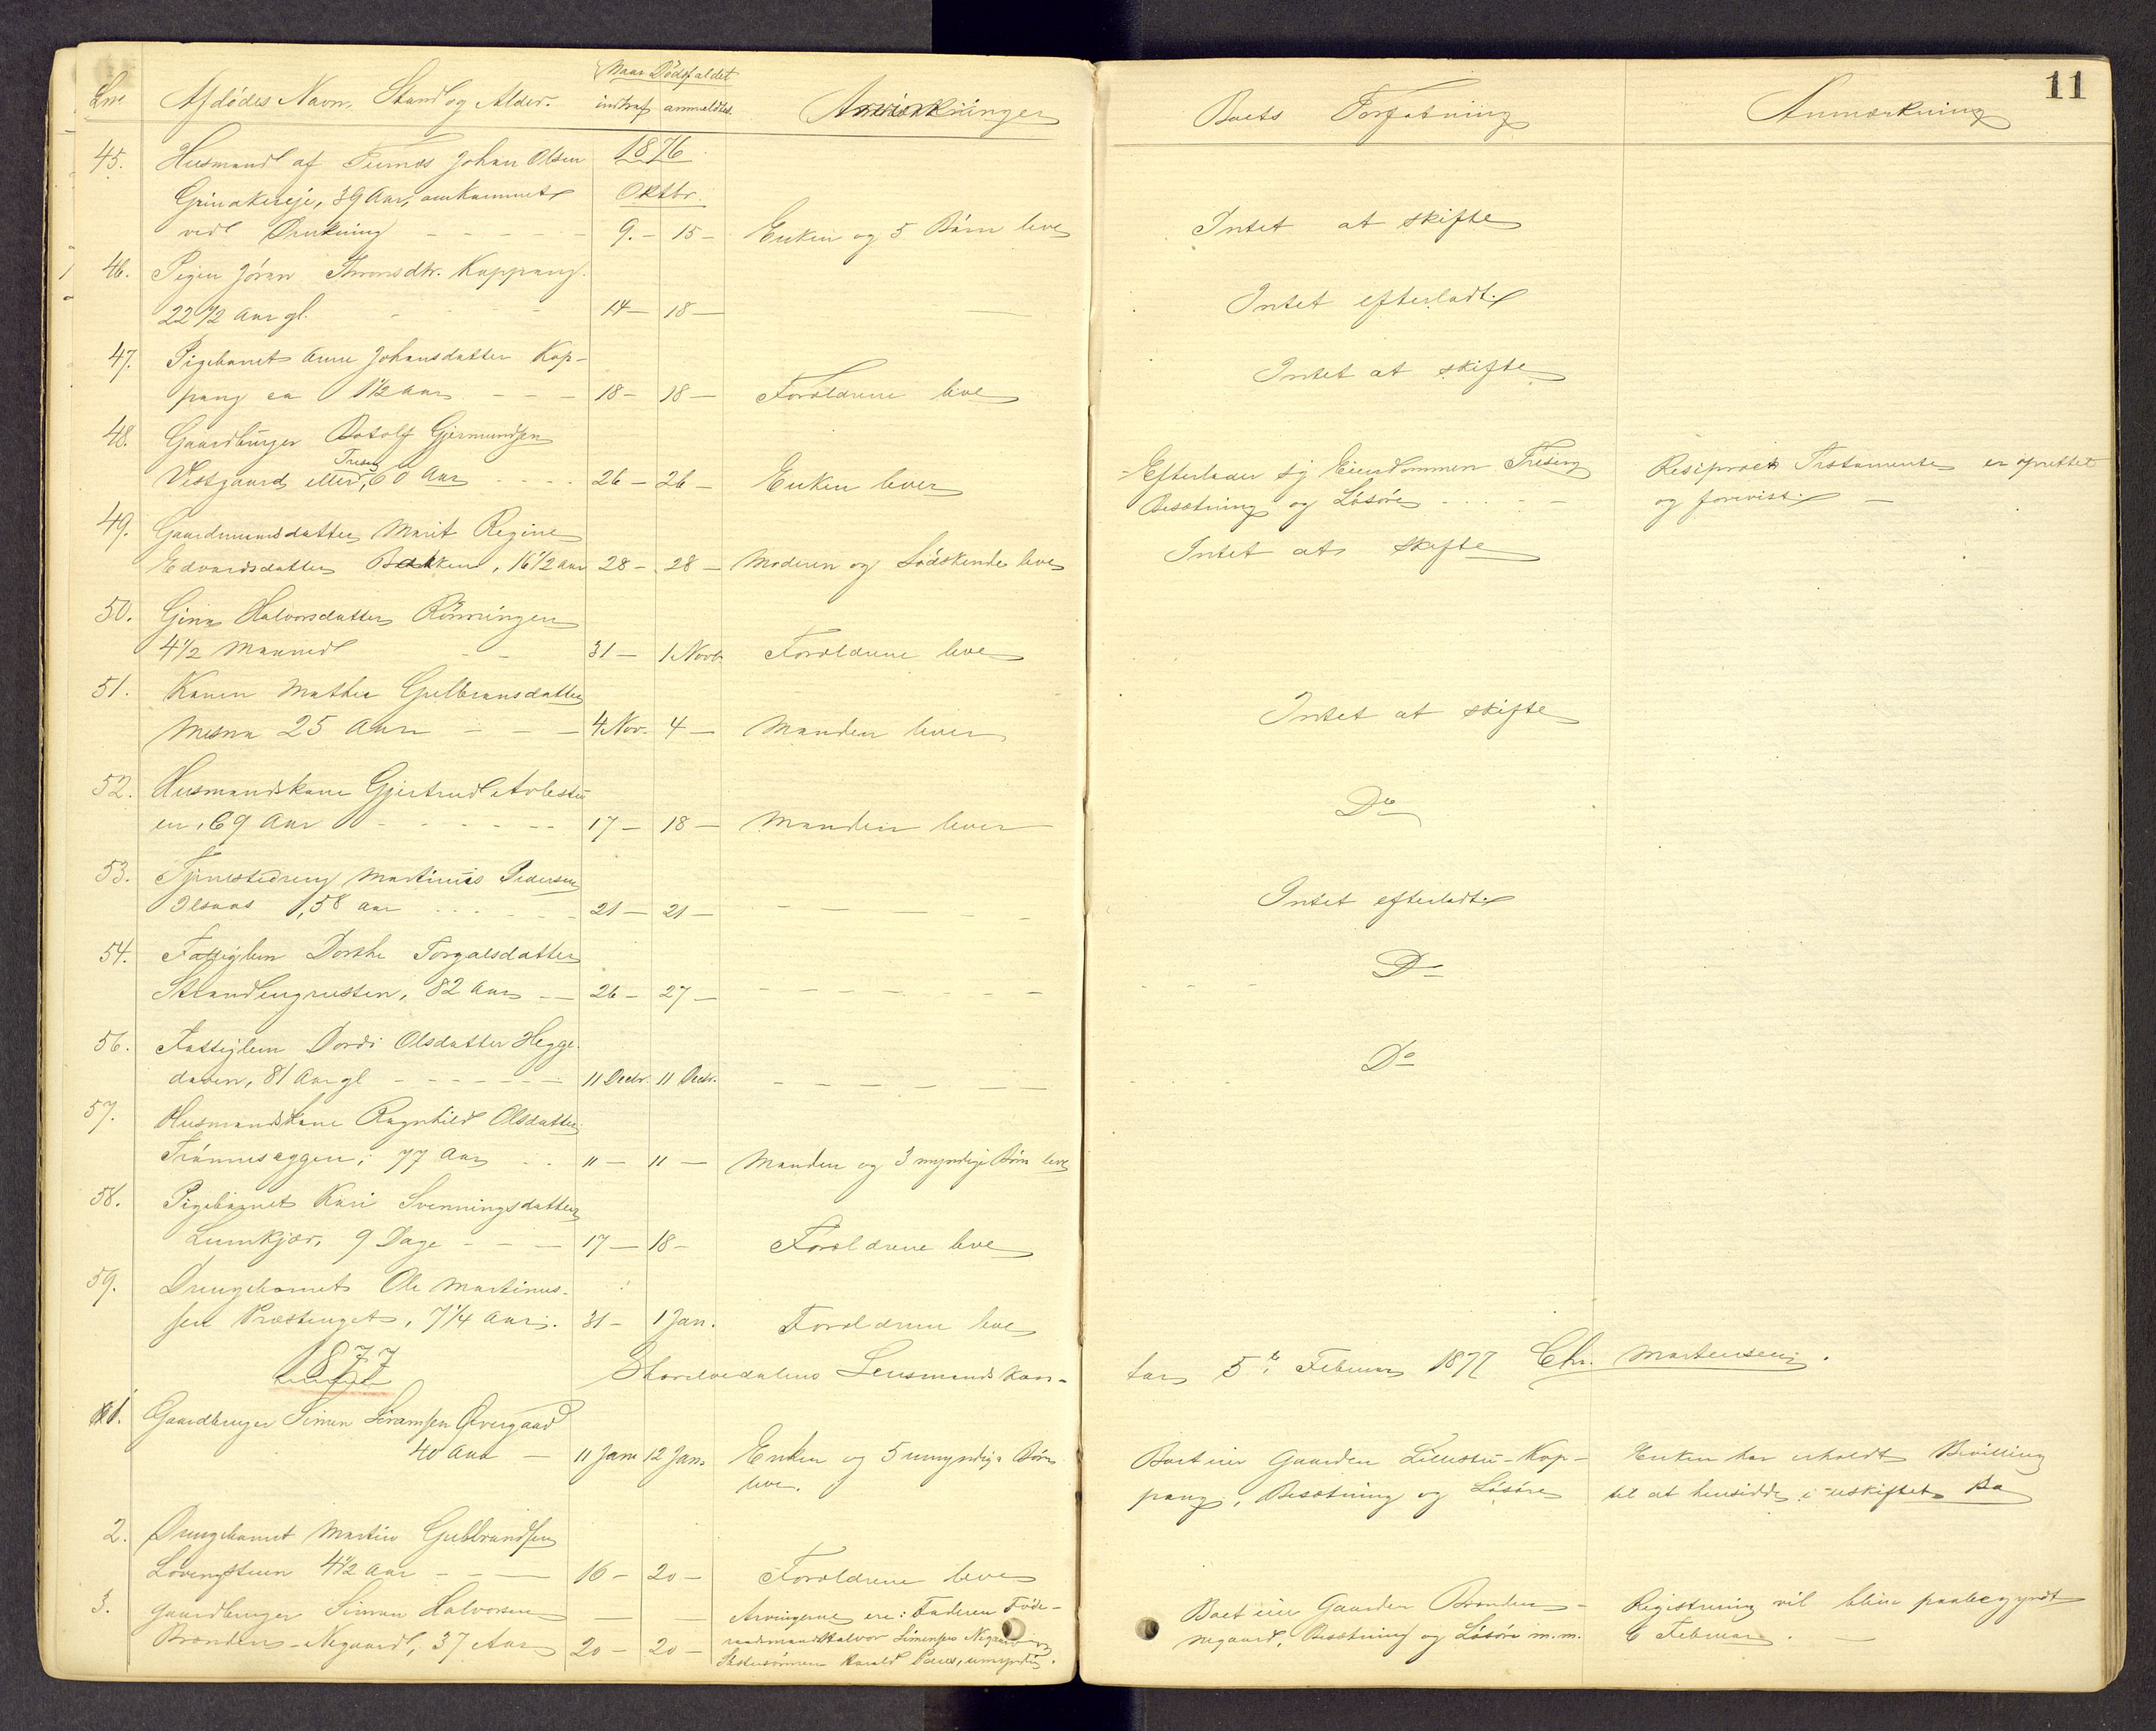 11
Lnr. Afdødes Navn, Stand og Alder. Naar Dødsfaldet indtraf anmeldtes. Anmærkninger Boets Forfatning Anmærkning
45. Husmand af Johan Olsen 1876
Grinakereje, 39 Aar, omkommet Oktbr.
ved Drukning 9. 15 Enken og 5 Børn leve Intet at skifte
46. Pigen Jøran Koppang.
22 1/2 Aar gl. 14 18 Intet efterladt.
47. Pigebarnet Anne Johansdatter Kop-
pang ca 1 1/2 Aar 18 18 Forældrene leve Intet at skifte
48. Gaardbruger Botolf Gjermundsen
Vestgaard eller Treseng, 60 Aar 26 26 Enken lever Efterlader sig Eiendommen Treseng Resiprock Testamente er oprettet
Besætning og Løsøre og forevist.
49. Gaardmandsdatter Marit Regine
Edvardsdatter Bakken, 16 1/2 Aar 28 28 Moderen og Sødskende leve Intet at skifte
50. Gina Halvorsdatter Rønningen
4 1/2 Maaned 31 1 Novb. Forældrene leve
51. Karen Mathea Gulbransdatter
Mesna 25 Aar 4 Nov. 4 Manden lever Intet at skifte
52. Husmandskone Gjertrud
en, 69 Aar 17 18 Manden lever Do
53. Tjenestedreng Martinus Pedersen
58 Aar 21 21 Intet efterladt
54. Fattiglem Dorthe Torgalsdatter
82 Aar 26 27 Do
56. Fattiglem Dordi Olsdatter Hegge-
daven, 81 Aar gl 11 Decbr. 11 Decbr. Do
57. Husmandskone Ragnhild Olsdatter
77 Aar 11 11 Manden og 3 myndige Børn leve
58. Pigebarnet Kari Svenningsdatter
Lumkjær, 9 Dage 17 18 Forældrene leve
59. Drengebarnet Ole Martinus-
sen Præstenget, 7 1/4 Aar. 31 1 Jan. Forældrene leve
1877 Storelvedalens Lensmandskon- tor 5te Februar 1877 Chr. Mortensen.
1. Gaardbruger Simen Øvergaard
40 Aar 11 Jan. 12 Jan. Enken og 5 umyndige Børn Boet eier Gaarden Lillestu-Kop- Enken har erholdt Bevilling
leve. pang, Besætning og Løsøre til at hensidde i uskiftet Bo
2. Drengebarnet Martin Gulbrandsen
4 1/2 Aar 16 20 Forældrene leve
3. Gaardbruger Simen Halvorsen Arvingerne ere: Faderen Føde- Boet eier Gaarden Branden- Registrering vil blive paabegyndt
Branden-Negaard, 37 Aar 20 20 raadsmand Halvor Simensen Negaard og negaard, Besætning og Løsøre m.m. 6 Februar.
Harald umyndig.